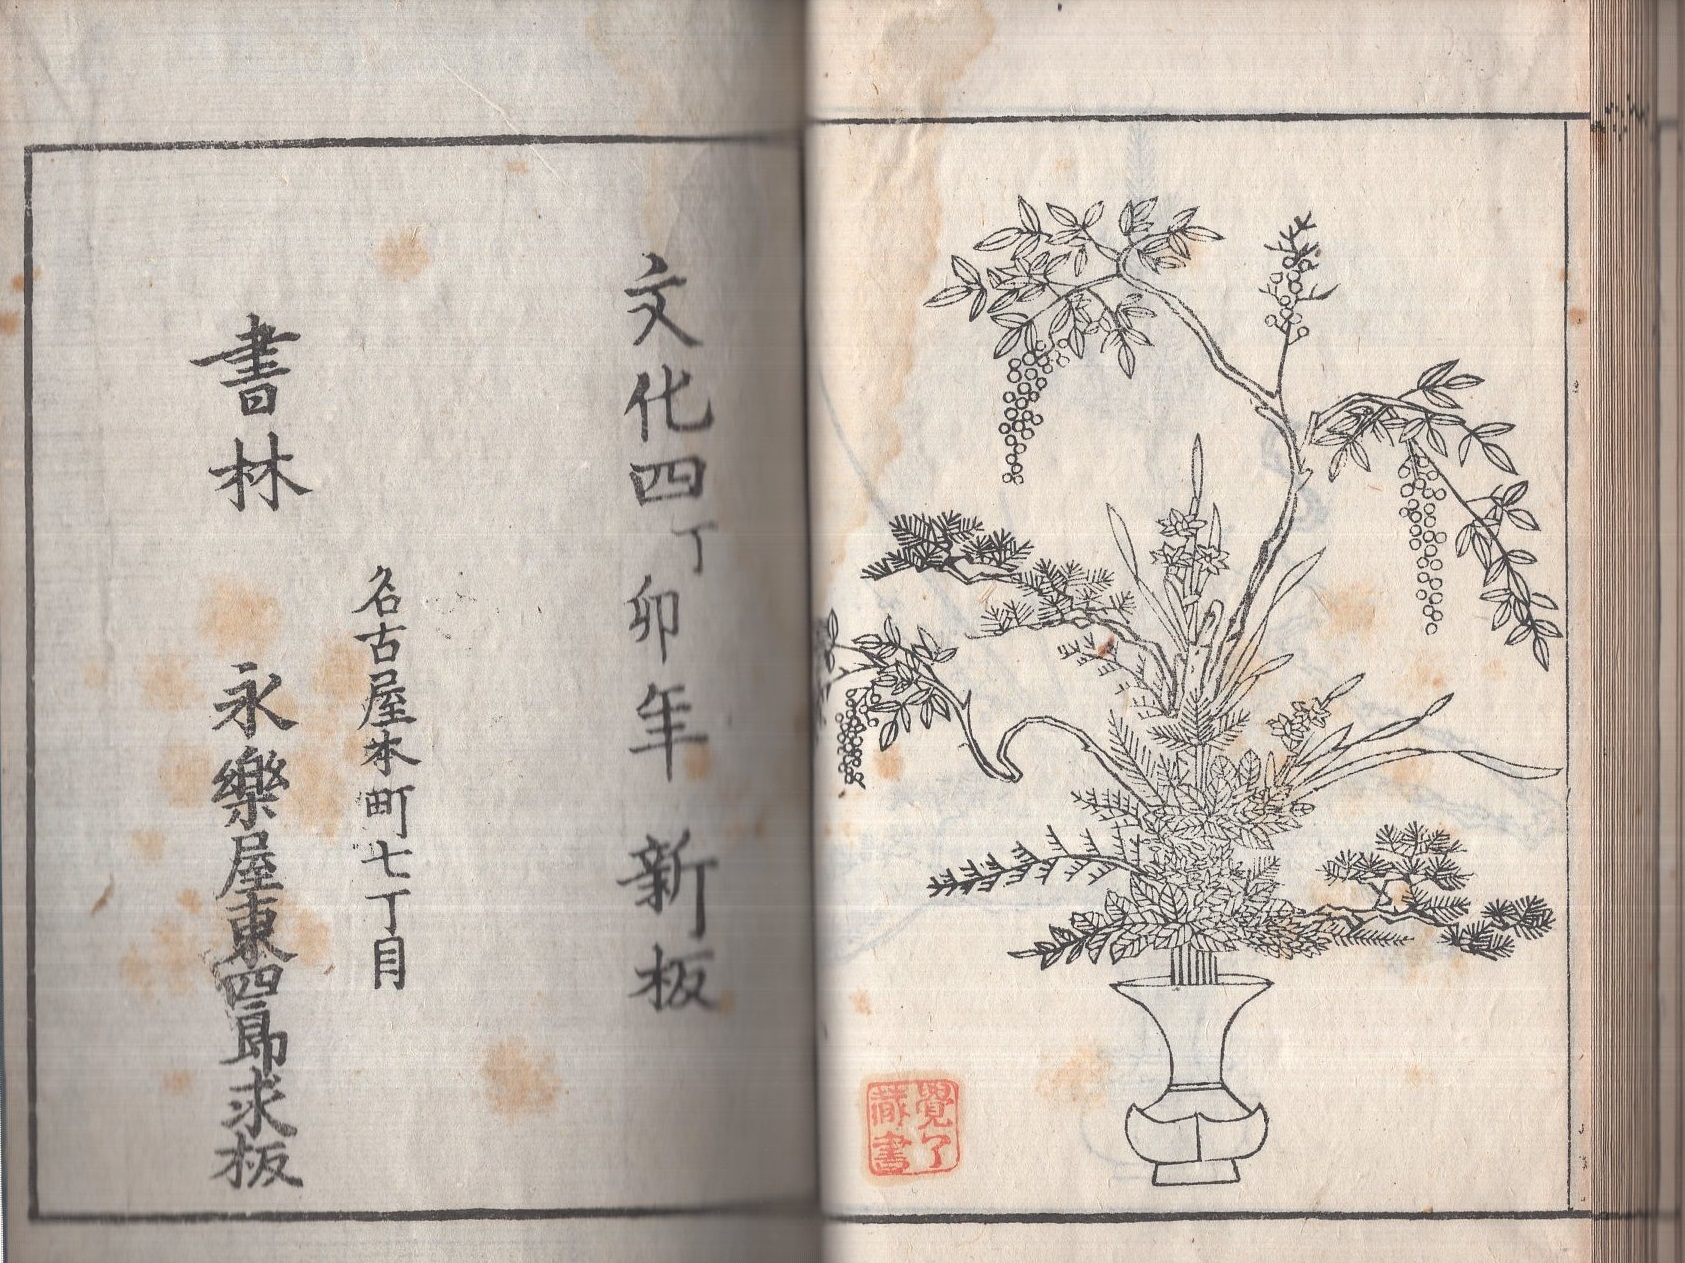 覺了
藏書
文化四丁卯年新板
名古屋本町七丁目
書林 永樂屋東四郎求板